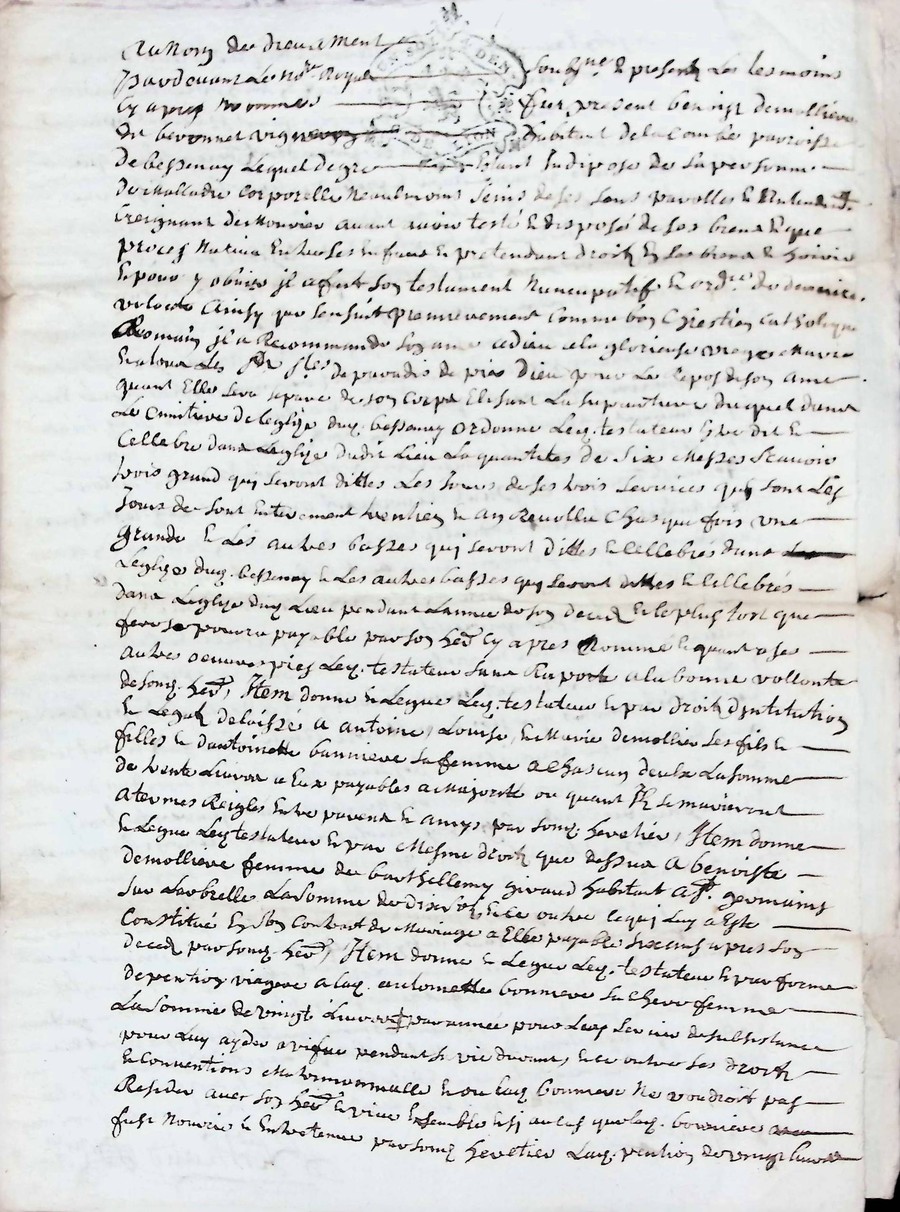 Au Nom de dieu Amen
Pardevant le No.re Royal soubs.ne & present les tesmoins
Cy apres nommes fut present benoist demolliere
du bevonnet vigneron habitant de la Combe parroisse
De bessenay Lequel de gre Estant Indispose de sa personne
De malladie Corporelle Neaulmoins seins de ses sens parolles & Entend.t
Creignant de mourier avant avoir testé & disposés de ses biens & que
proces Nativa Entre ses Enfans & pretendant droits En ses biens & hoirie
Et pour y obvier il a fait son testament Nuncupatif & ord.re de derniere
volonte Ainsy que sensuit Premierement Comme bon Chrestien Catholique
Romain il a Recommande son ame a dieu a la glorieuse vierge Marie
Et a tous Les S.ts S.tes de paradis de prier Dieu pour Le repos de son ame
quant Elle sera separee de son Corps Elisant La sepulture duquel dans
Le Cimitiere de leglize duq. bessenay ordonne Leq. testateur Estre dit &
Cellebre dans Leglize dudit Lieu La quantites de six Messes scavoir
trois grand qui seront dittes Les Jours de ses trois services qui sont Les
Jours de sont Enterement trentien & an Revollu Chasque fois une
grande & Les autres basses qui seront dittes & Cellebrés dans
Leglize duq. bessenay & Les autres basses qui seront dittes & Cellebrés
Dans Leglize duq Lieu pendant Lannee de son deced & le plus tost que
fere se pourra payable par son her.r Cy apres Nomme & quant a ses
autres oeuvres pies Leq. testateur sans Raporte a la bonne vollonte
de sonq. her.r, Item donne & Legue Leq. testateur & par droit dintitution
& Legat delaisse a antoine, Louise, & Marie demollier ses fils &
filles & dantoinette bonniere sa femme a Chascun deulx La somme
de trente Livres a Eux payables a Majorite ou quant Ils se marieront
a termes Reigles Entre parens & amys par sonq. heretier, Item donne
& Legue Leq testateur & par Mesme droit que dessus A benoiste
Demolliere femme de barthellemy giraud habitant a S.t germains
sur Larbrelles La somme de Dix sols & Ce outre Ce qui Luy a Este
Constitué En son Contrat de Mariage a Elle payable six ans apres son
Deced par sonq. her.r, Item donne & Legue Leq. testateur & par forme
De pention viagere a laq. antoinette bonniere sa Chere femme
La somme de vingt Livres par année pour Leq. service de subsistance
pour Luy ayder a vivre pendant sa vie durant, & Ce outre ses droits
& Conventions Matrimonialle & ou laq. bonniere Ne voudroit pas
Resider avec son her.r & vivre Ensemble & si au Cas que laq. bonniere
fust Nourrie & Entretenue par sonq heretier Laq. pention de vingt livres